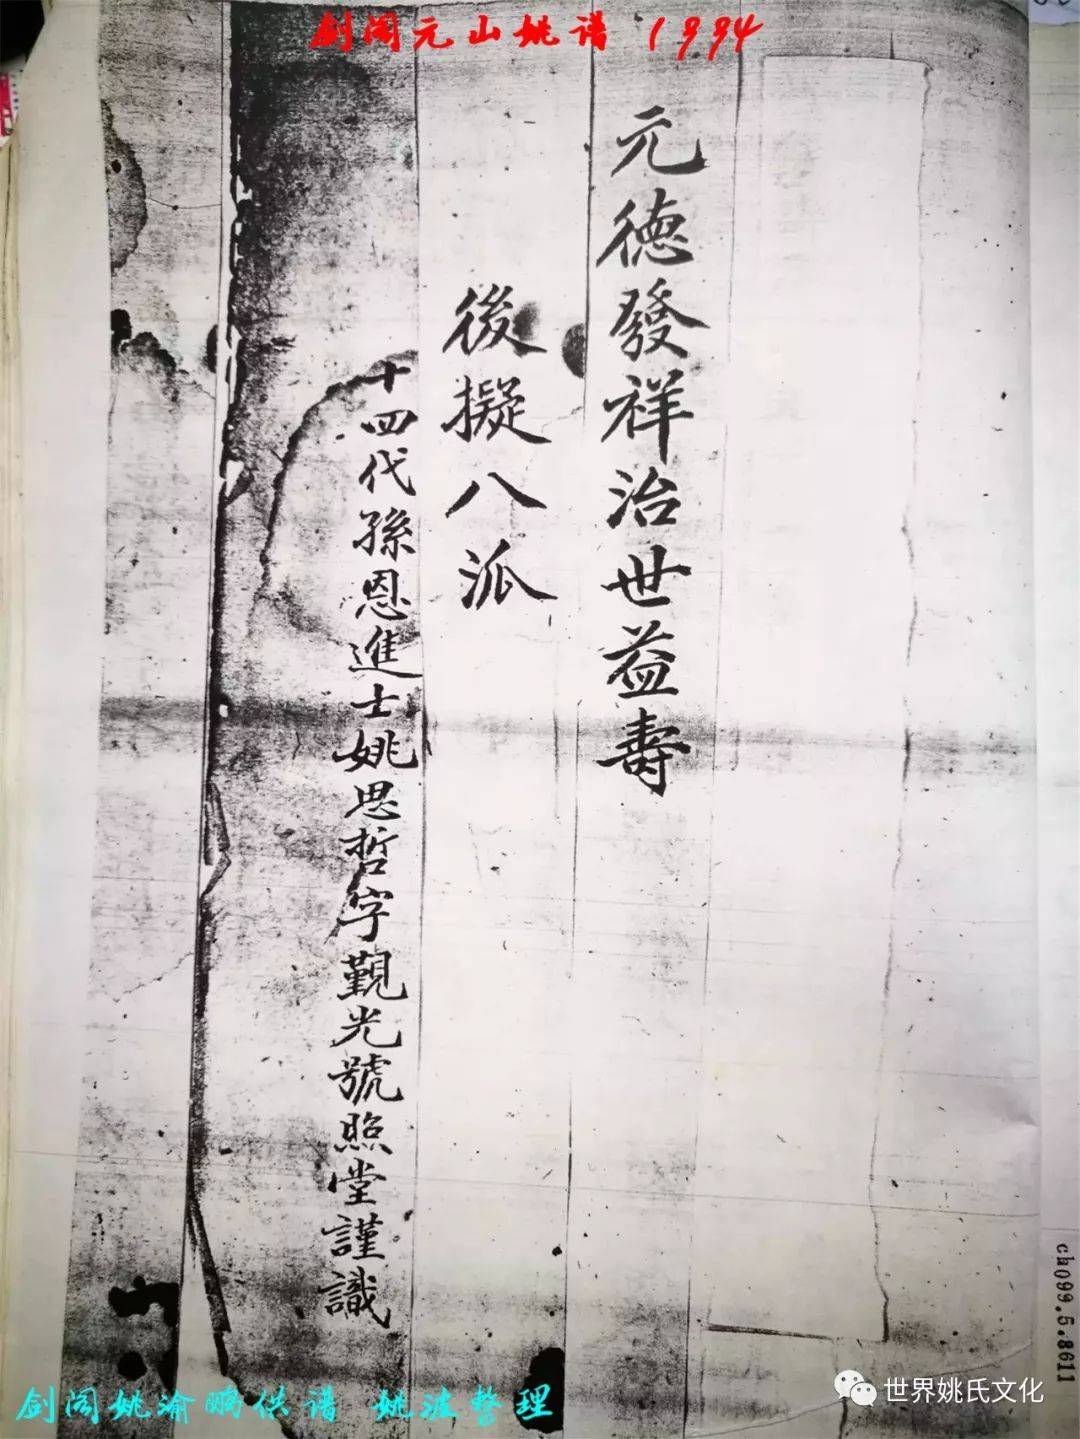 剑阁元山姚谱 1994
元德發祥治世益壽
後擬八派
十四代孫恩進士姚思哲字覲光號照堂謹識
ch099.5.8611
剑阁姚渝鹏供谱 姚波整理
世界姚氏文化